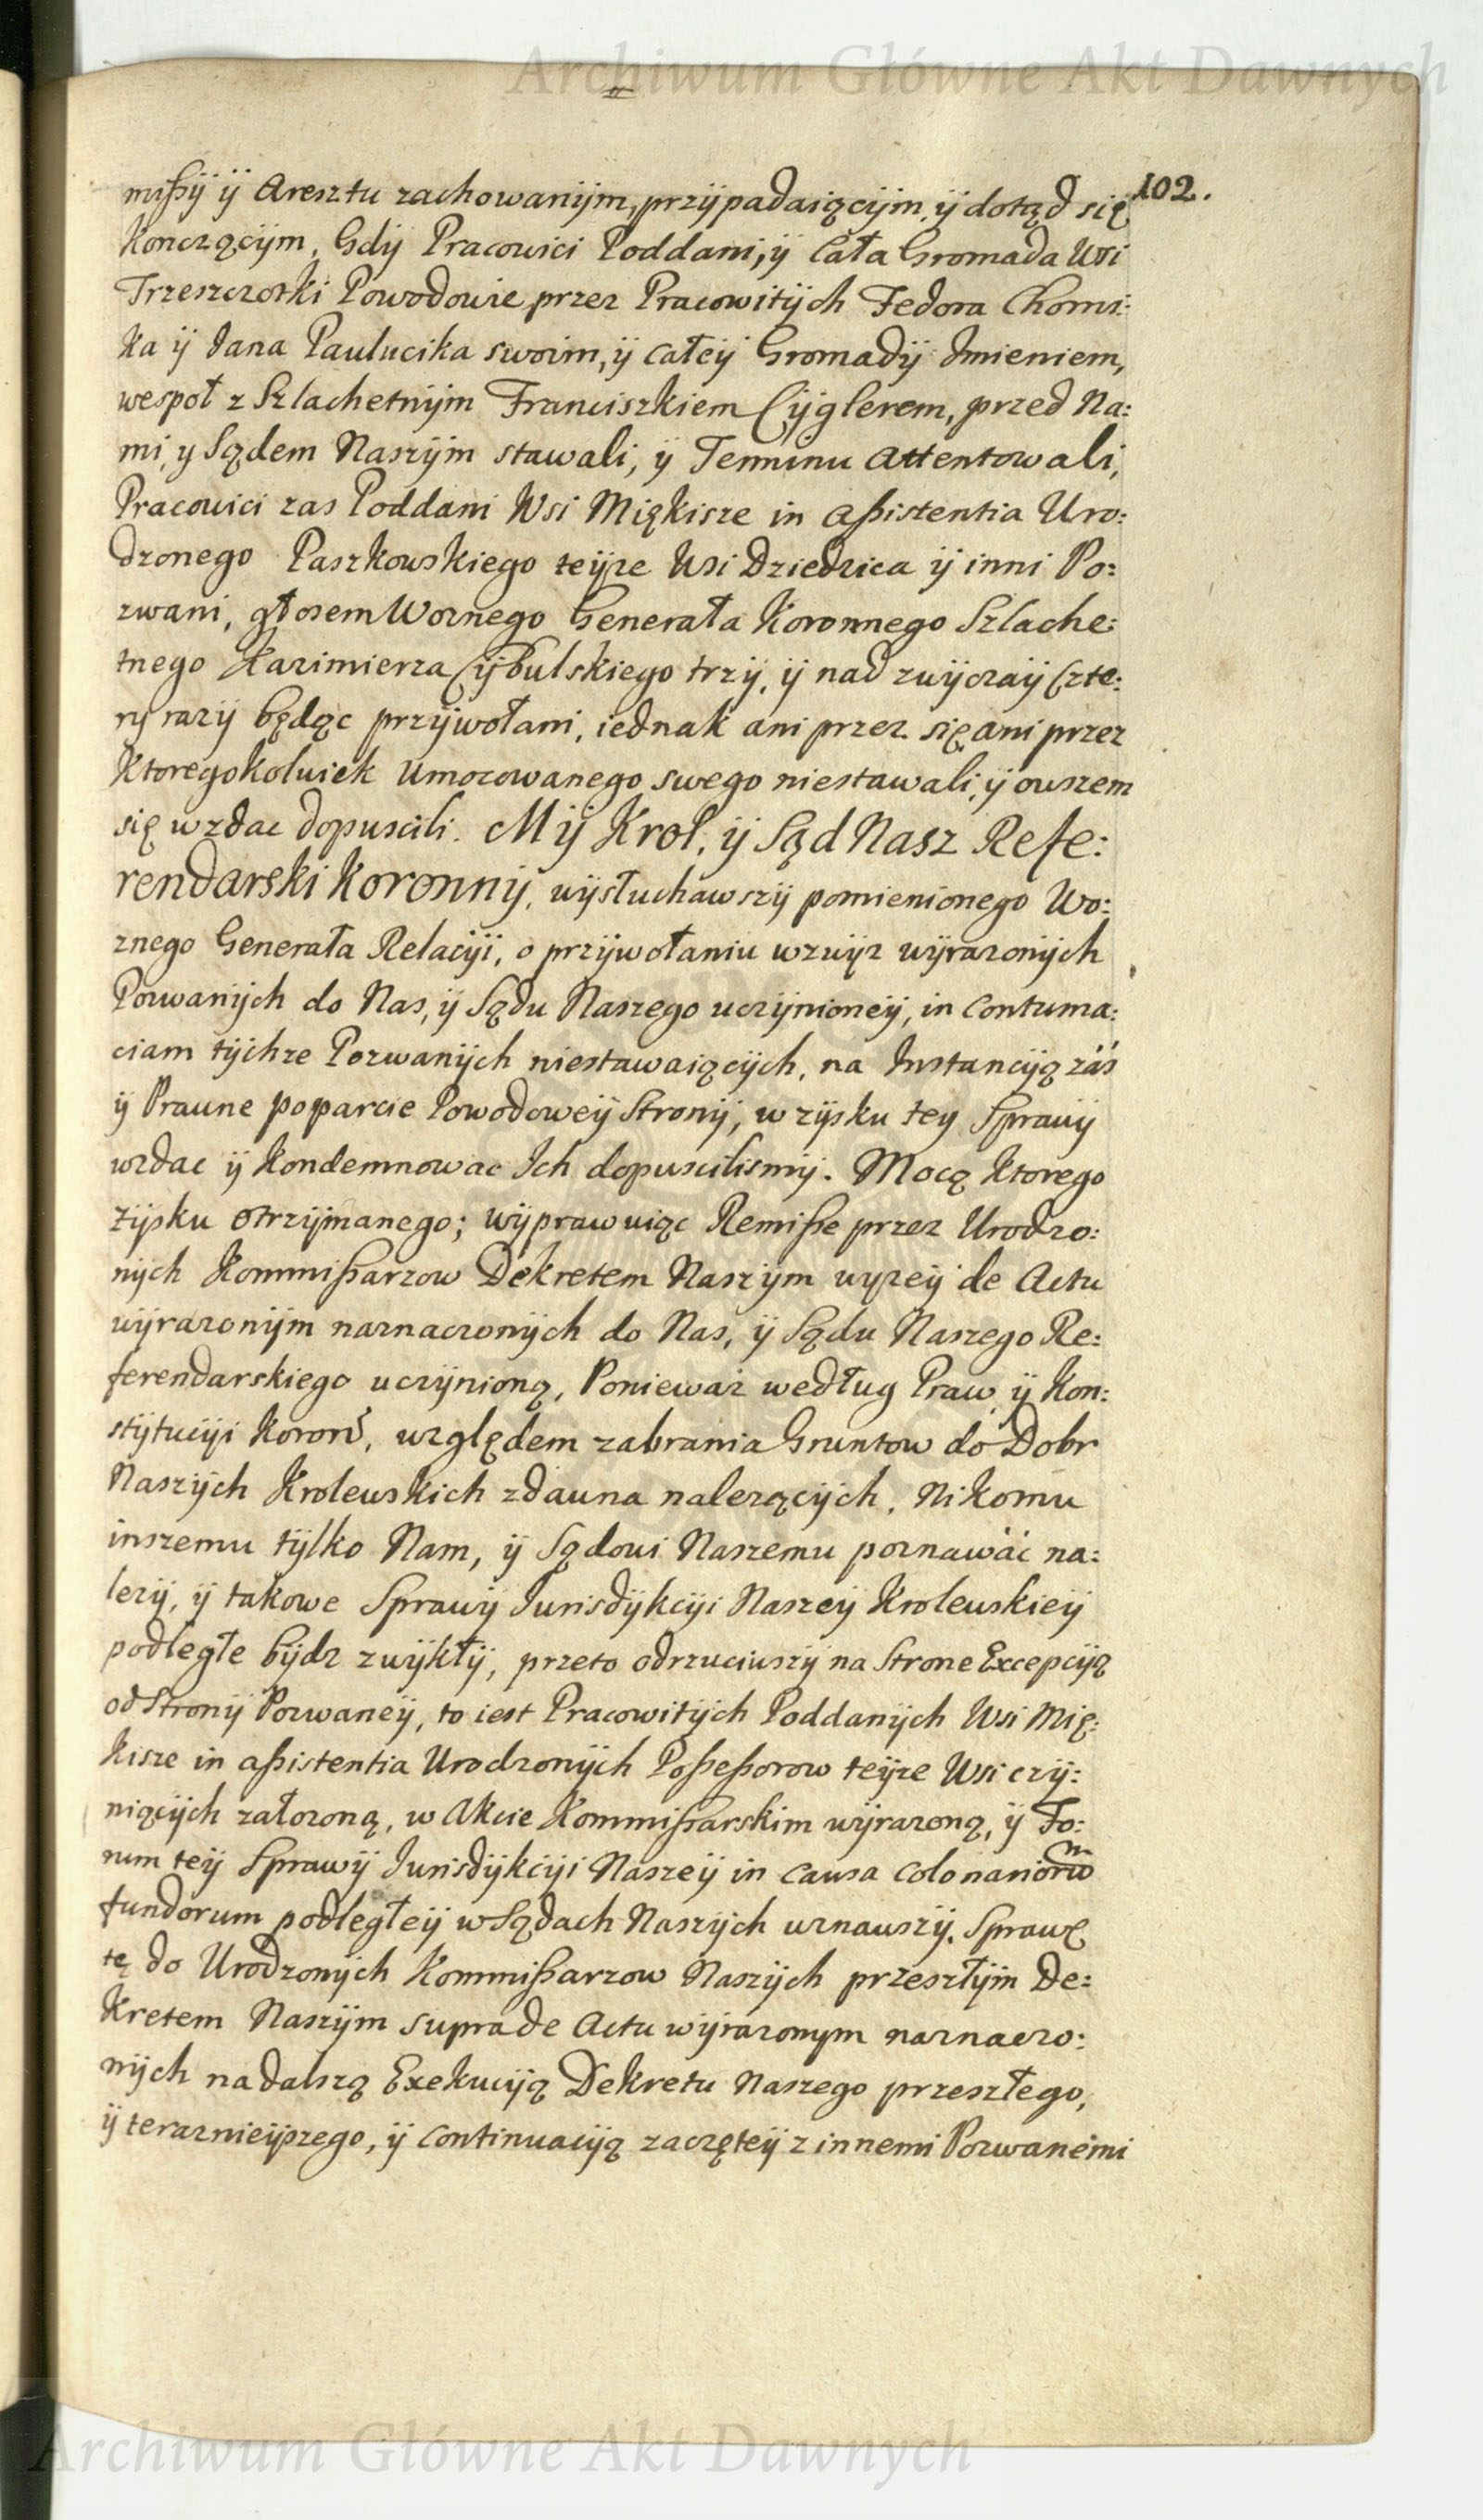 Archiwum Główne Akt Dawnych
102.
mißÿ ÿ Aresztu zachowanÿm, przÿpadaiącÿm, ÿ dotąd się
konczącÿm, Gdÿ Pracowici Poddani, ÿ Cała Gromada Wsi
Trzeszczotki Powodowie przez Pracowitÿch Fedora Chomi:
ka ÿ Jana Paulucika swoim, ÿ całeÿ Gromadÿ Jmieniem,
wespoł z Szlachetnÿm Franciszkiem Cÿglerem, przed Na:
mi, y Sądem Naszÿm stawali, ÿ Terminu Attentowali,
Pracowici zas Poddani Wsi Miękisze in aßistentia Uro:
dzonego Paszkowskiego teÿze Wsi Dziedzica ÿ inni Po:
zwani, głosem Woznego Generała Koronnego Szlache:
tnego Kazimierza Cÿbulskiego trzÿ, ÿ nad zwÿczaÿ Czte:
ry razÿ będąc przÿwołani, iednak ani przez się ani przez
Ktoregokolwiek Umocowanego swego niestawali, ÿ owszem
się wzdac dopuscili. Mÿ Krol, ÿ Sąd Nasz Refe:
rendarski Koronnÿ, wÿsłuchawszÿ pomienionego Wo:
znego Generała Relacÿi, o przÿwołaniu wzwÿz wÿrazonÿch
Pozwanÿch do Nas, ÿ Sądu Naszego uczÿnioneÿ, in Contuma:
ciam tÿchze Pozwanÿch niestawaiącÿch, na Instancÿą zaś
ÿ Prawne poparcie Powodoweÿ Stronÿ, w zÿsku tey Sprawÿ
wzdac ÿ kondemnowac Ich dopuscilismÿ. Mocą Ktorego
zÿsku otrzÿmanego; wÿprawuiąc Remiße przez Urodzo:
nÿch Kommißarzow Dekretem Naszÿm wyzeÿ de Actu
wÿrazonÿm naznaczonÿch do Nas, ÿ Sądu Naszego Re:
ferendarskiego uczÿnioną, Poniewaz według Praw, ÿ Kon:
stÿtucÿi Koron, względem zabrania Gruntow do Dobr
Naszÿch Krolewskich zdawna nalezącÿch, Nikomu
inszemu tÿlko Nam, ÿ Sądowi Naszemu poznawáć na:
lezÿ, ÿ takowe Sprawÿ Jurisdÿkcÿi Naszeÿ Krolewskieÿ
podległe bÿdz zwÿkłÿ, przeto odrzuciwszÿ na Strone Excepcÿą
od Stronÿ Pozwaneÿ, to iest Pracowitÿch Poddanÿch Wsi Mię:
kisze in aßistentia Urodzonÿch Poßeßorow teÿze Wsi czÿ:
niącÿch załozoną, w Akcie Kommißarskim wÿrazoną, ÿ Fo:
rum teÿ Sprawÿ Jurisdÿkcÿi Naszeÿ in causa colonariorum
fundorum podległeÿ w Sądach Naszÿch uznawszÿ, Sprawę
tę do Urodzonych Kommißarzow Naszÿch przeszłÿm De:
kretem Naszÿm supra de Actu wÿrazonym naznaczo:
nÿch na dalszą Exekucÿą Dekretu Naszego przeszłego,
ÿ teraznieÿszego, ÿ Continuacÿą zaczęteÿ z innemi Pozwanemi
Archiwum Główne Akt Dawnych